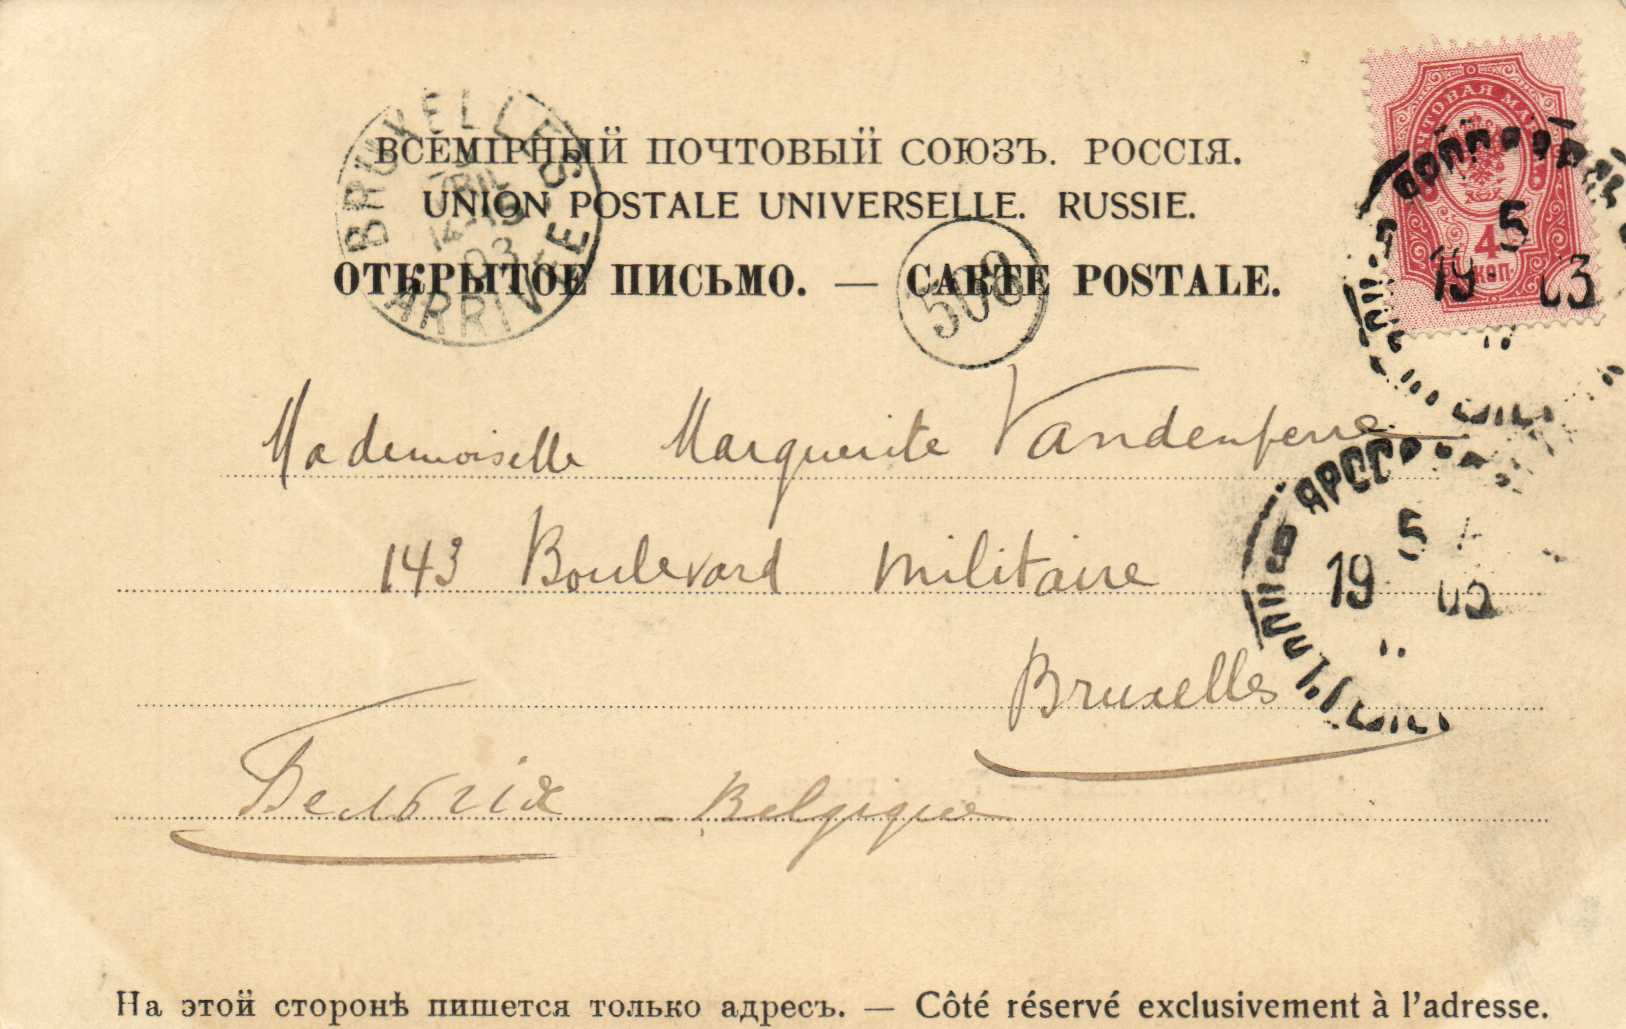 ВСЕМІРНЫЙ ПОЧТОВЫЙ СОЮЗЪ. РОССІЯ.
UNION POSTALE UNIVERSELLE. RUSSIE.
ОТКРЫТОЕ ПИСЬМО. — CARTE POSTALE.
BRUXELLES
03
ARRIVEE
508
ПОЧТОВАЯ МАРКА
4
КОП.
5
19 03
Mademoiselle Marguerite Vandenperre
143 Boulevard Militaire
Bruxelles
Бельгія - Belgique
5
19
На этой сторонѣ пишется только адресъ. — Côté réservé exclusivement à l'adresse.